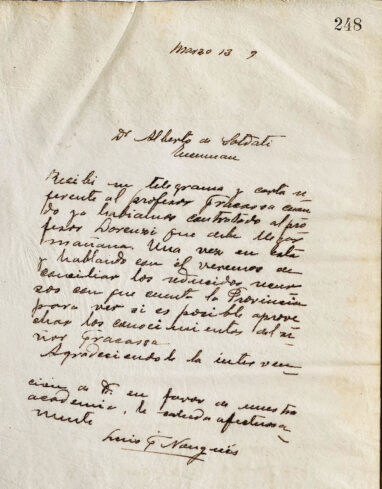 248
Marzo 13 9
Dr Alberto de Soldati
Tucuman
Recibi su telegrama y carta re-
ferente al profesor Fracassa cuan-
do ya habiamos contratado al pro-
fesor Lorenzi que debe llegar
mañana. Una vez en esta
y hablando con él veremos de
conciliar los reducidos recur-
sos con que cuenta la Provincia
para ver si es posible aprove-
char los conocimientos del se-
ñor Fracassa.
Agradeciendole la interven-
cion de Ud. en favor de nuestra
academia, le saluda afectuosa-
mente
Luis F Nougués